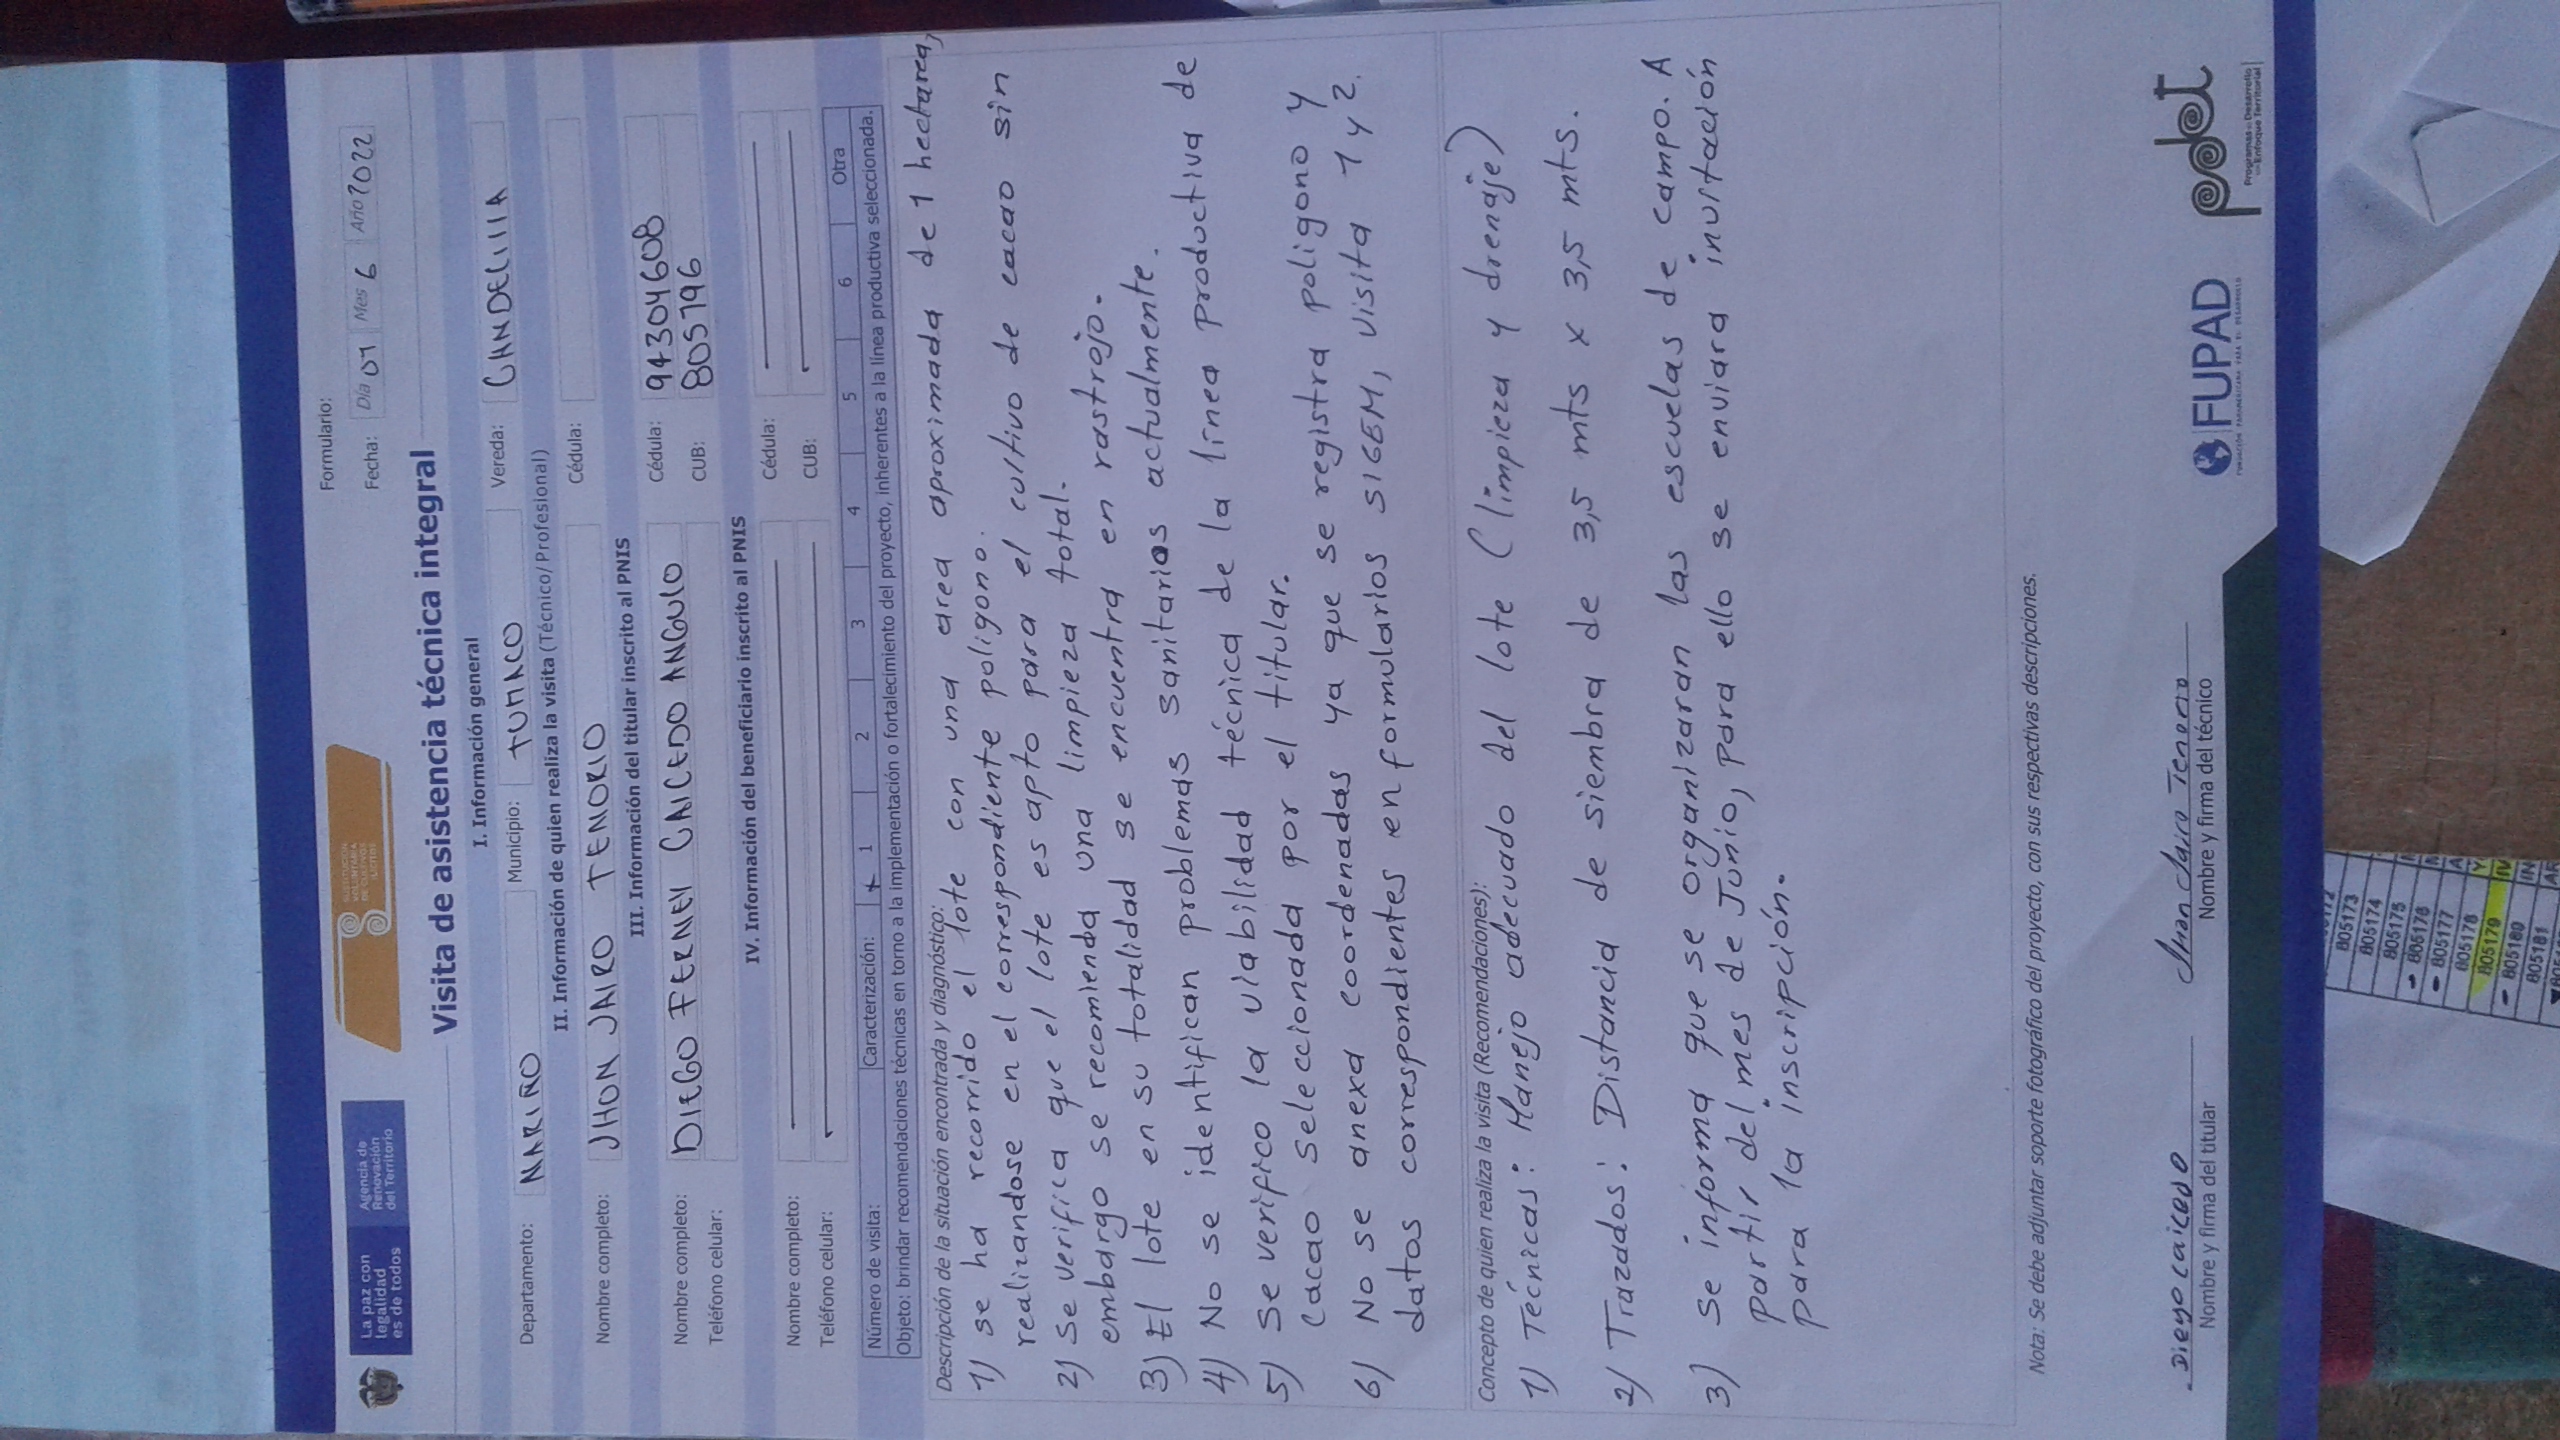 La paz con
legalidad
es de todos
Agencia de
Renovación
del Territorio
SUSTITUCIÓN
VOLUNTARIA
DE CULTIVOS
ILÍCITOS
Formulario:
Fecha: Día 07 Mes 6 Año 2022
Visita de asistencia técnica integral
I. Información general
Departamento: NARIÑO Municipio: TUMACO Vereda: CANDELILLA
II. Información de quien realiza la visita (Técnico/ Profesional)
Nombre completo: JHON JAIRO TENORIO Cédula:
III. Información del titular inscrito al PNIS
Nombre completo: DIEGO FERNEY CAICEDO ANGULO Cédula: 94304608
Teléfono celular: CUB: 805796
IV. Información del beneficiario inscrito al PNIS
Nombre completo: Cédula:
Teléfono celular: CUB:
Número de visita: Caracterización: x 1 2 3 4 5 6 Otra
Objeto: brindar recomendaciones técnicas en torno a la implementación o fortalecimiento del proyecto, inherentes a la línea productiva seleccionada.
Descripción de la situación encontrada y diagnóstico:
1) se ha recorrido el lote con una area aproximada de 1 hectarea,
realizandose en el correspondiente poligono.
2) Se verifica que el lote es apto para el cultivo de cacao sin
embargo se recomienda una limpieza total.
3) El lote en su totalidad se encuentra en rastrojo.
4) No se identifican problemas sanitarios actualmente.
5) Se verifico la viabilidad técnica de la línea productiva de
cacao seleccionada por el titular.
6) No se anexa coordenadas ya que se registra poligono y
datos correspondientes en formularios SIGEM, visita 1 y 2.
Concepto de quien realiza la visita (Recomendaciones):
1) Técnicas: Manejo adecuado del lote (limpieza y drenaje)
2) Trazados: Distancia de siembra de 3,5 mts x 3,5 mts.
3) Se informa que se organizaran las escuelas de campo. A
partir del mes de Junio, para ello se enviara invitación
para la inscripción.
Nota: Se debe adjuntar soporte fotográfico del proyecto, con sus respectivas descripciones.
Diego caicedo
Nombre y firma del titular
Jhon Jairo Tenorio
Nombre y firma del técnico
FUPAD
FUNDACIÓN PANAMERICANA PARA EL DESARROLLO
pdet
Programas de Desarrollo
con Enfoque Territorial
805173
805174
805175
805176
805177
805178
805179
805180
805181